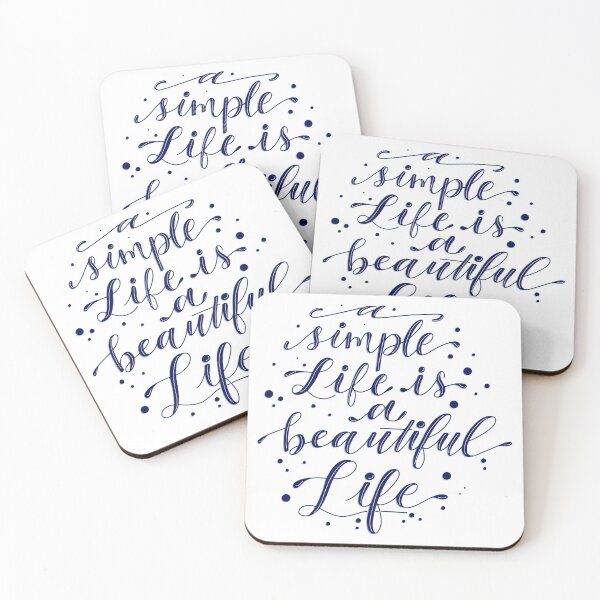 a
simple
Life is
a
simple
Life is
a
beautiful
a
simple
Life is
a
beautiful
Life
a
simple
Life is
a
beautiful
Life